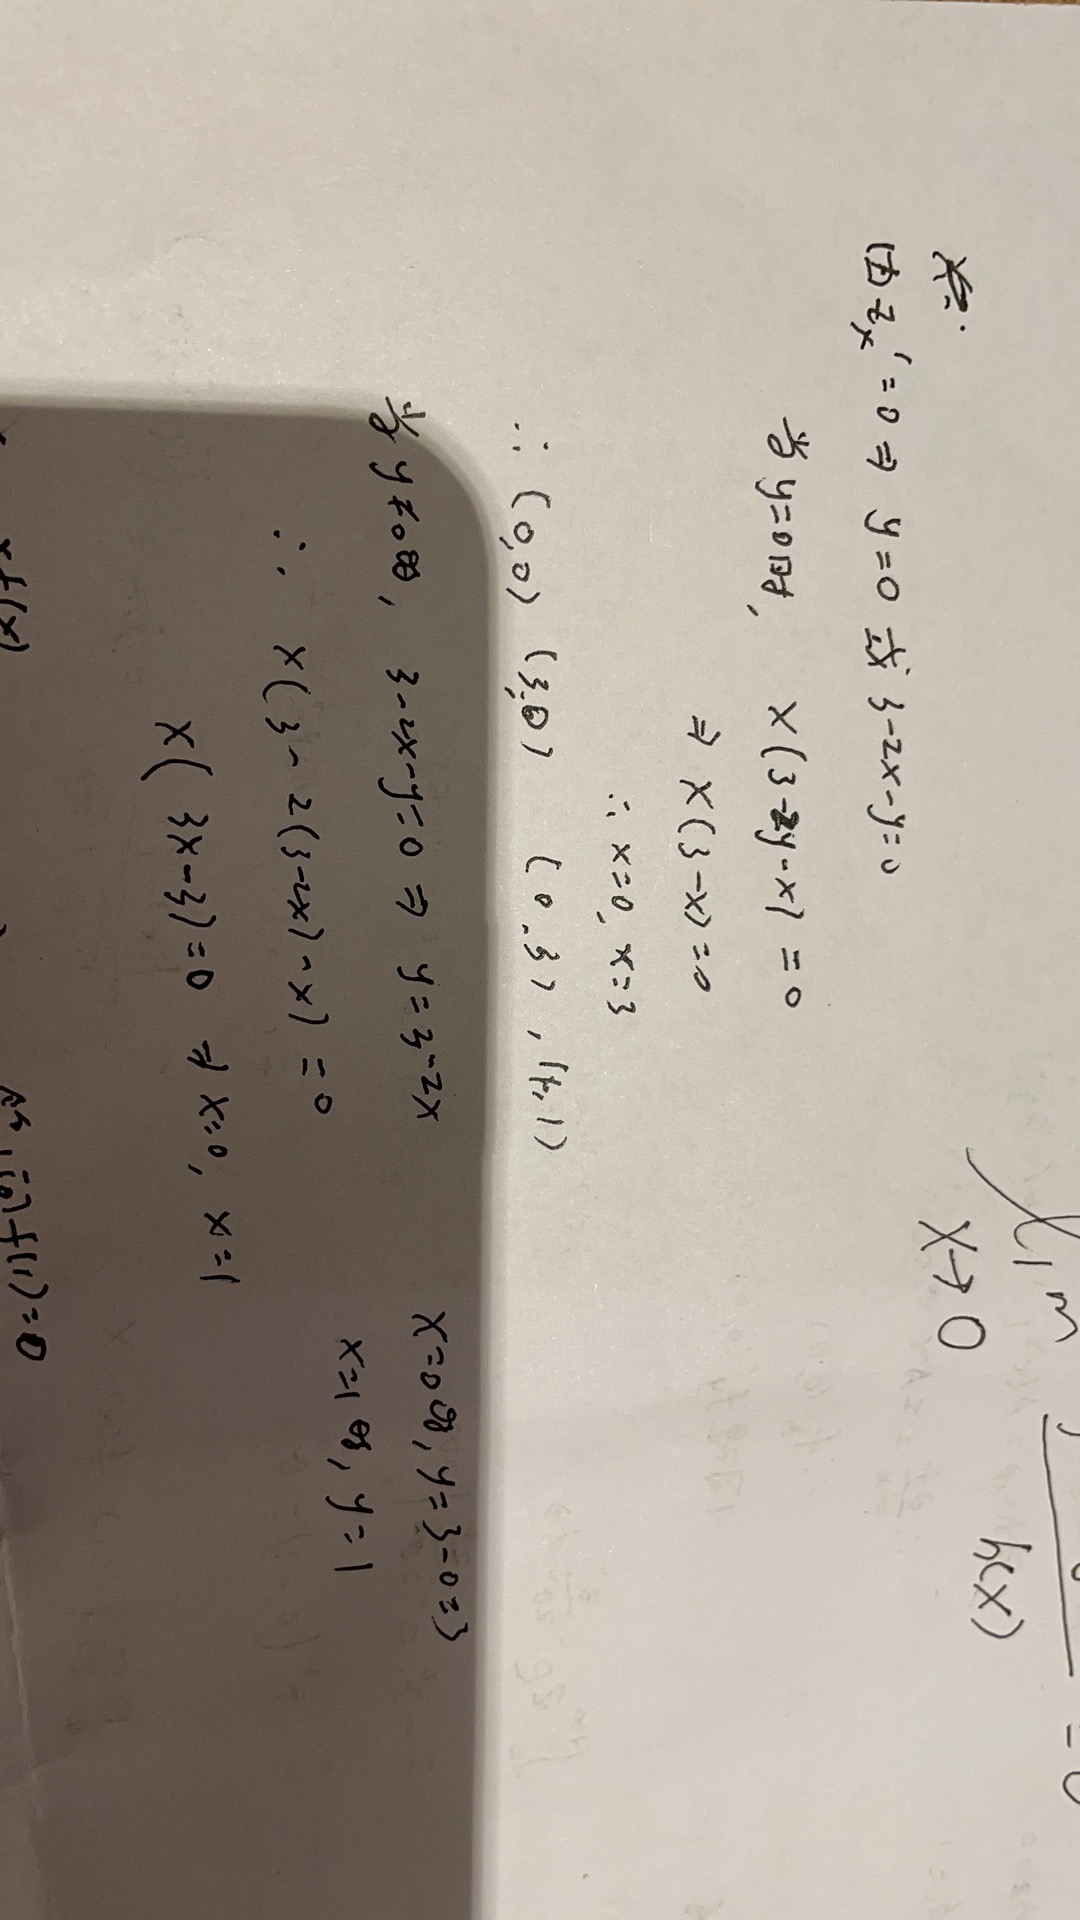 lim
x→0
h(x)
由 Zx' = 0 ⇒ y=0 或 3-2x-y=0
当 y=0时, x(3-2y-x) = 0
⇒ x(3-x)=0
∴ x=0, x=3
∴ (0,0) (3,0) (0,3), (1,1)
当 y≠0时, 3-2x-y=0 ⇒ y=3-2x
x=0时, y=3-0=3
∴ x(3-2(3-2x)-x) = 0
x=1时, y=1
x(3x-3)=0 ⇒ x=0, x=1
xf(x)
f(1)=0